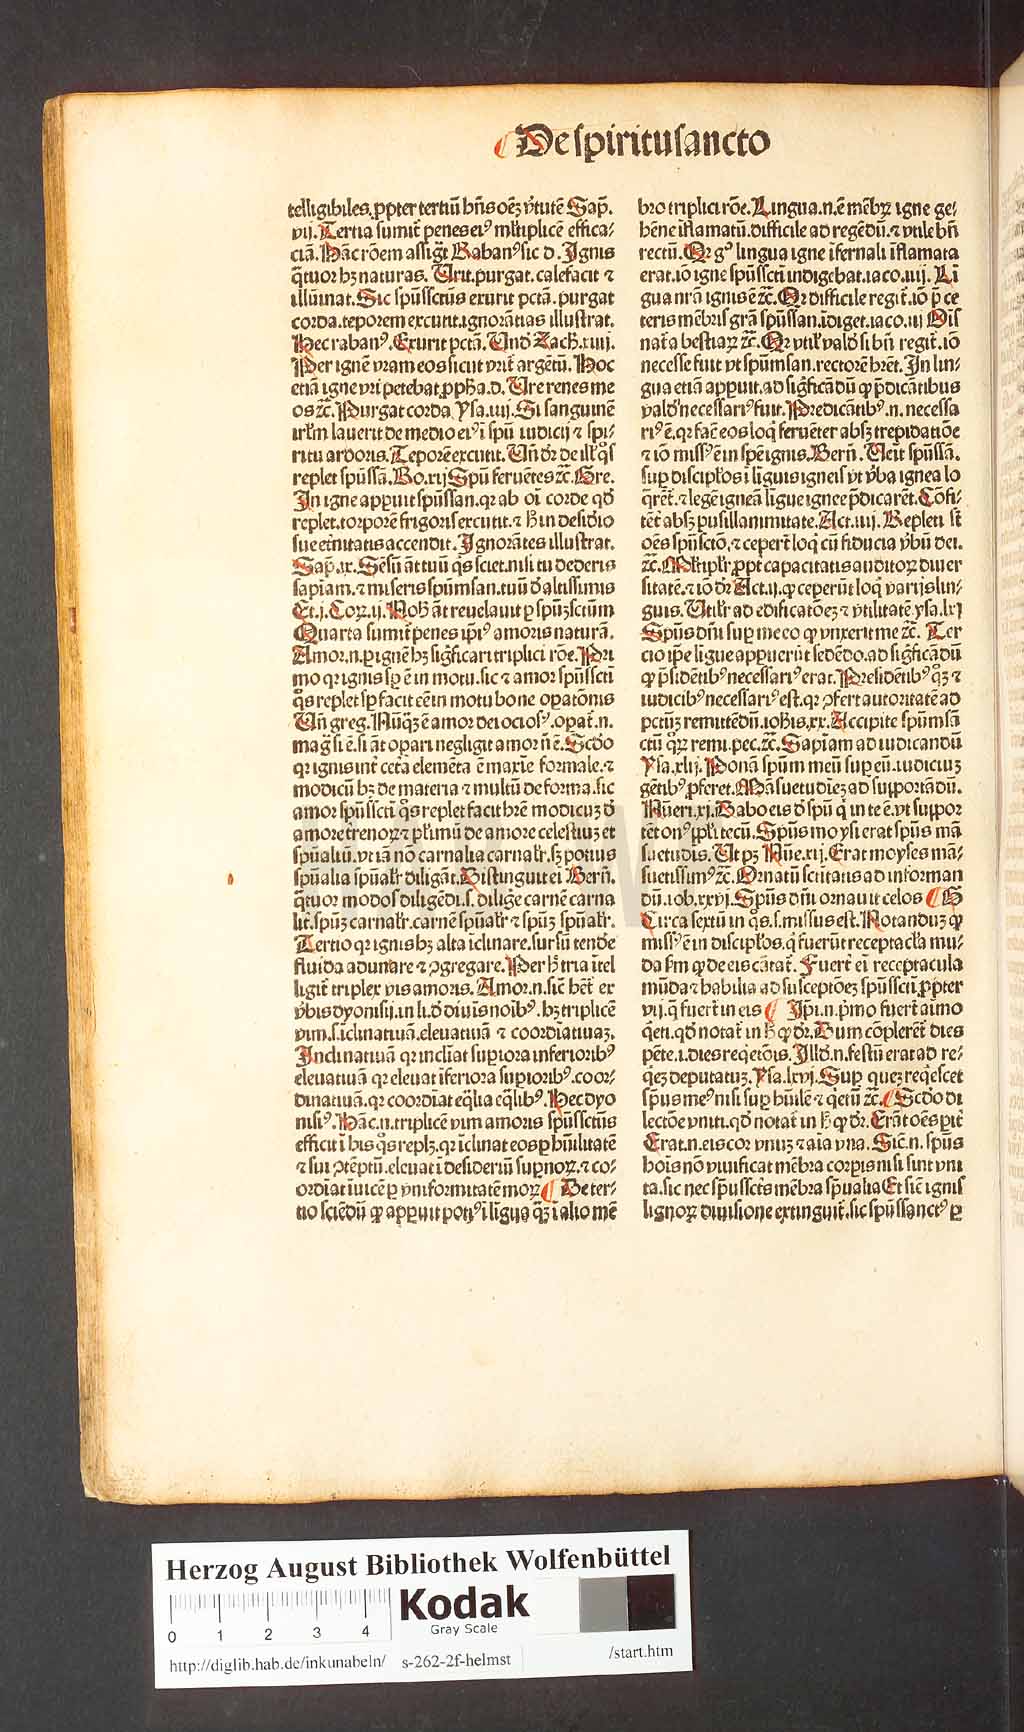 De spiritusancto
telligibiles. ꝓpter tertiū bñs oēʒ v̓tutē Sap̄.
vij. Tertia sumit̄ penes eiꝰ ml̓tiplicē effica⸗
ciā. Hāc rōem assigt̄ Rabanꝰ sic d. Ignis
q̄tuor hʒ naturas. Urit. purgat. calefacit ⁊
illūinat. Sic spūssctūs exurit pctā. purgat
corda. teporem excutit. ignorātias illustrat.
Hec rabanꝰ. Exurit pctā. Und̓ Zach. xiij.
Per ignē vram eos sicut vrit̄ argētū. Hoc
etiā igne vri petebat ꝓpħa. d. Ure renes me
os ⁊c̄. Purgat corda. ysa. iiij. Si sanguinē
irlm̄ lauerit de medio eiꝰ ī spū iudicij ⁊ spi⸗
ritu ardoris. Teporē excutit. Uñ dr̄ de ill̓ q̊s
replet spūssā. Ro. xij Spū feruētes ⁊c̄. Gre.
In igne appuit spūssan. qr ab oī corde qd̓
replet. torporē frigoris excutit. ⁊ ħ in desidio
sue et̓nitatis accendit. Ignorātes illustrat.
Sap̄. ix. Sēsū āt tuū q̊s sciet. nisi tu dederis
sapiam̄. ⁊ miseris spūmsan. tuū d̓ altissimis
Et. j. Coꝝ. ij. Nob̄ āt reuelauit ꝑ spūʒsctūm
Quarta sumit̄ penes ip̄iꝰ amoris naturā.
Amor. n. ꝑ ignē hʒ sig̓ficari triplici rōe. Pri
mo qr ignis sꝑ ē in motu. sic ⁊ amor spūsscti
q̊s replet sꝑ facit eē in motu bone oꝑatōnis
Uñ greg. Nūq̄ʒ ē amor dei ociosꝰ. oꝑat̄. n.
mag̓ si ē. si āt oꝑari negligit amor nō ē. Scd̓o
qr ignis int̓ cet̓a elemēta ē maxīe formale. ⁊
modicū hʒ de materia ⁊ multū de forma. sic
amor spūsscti q̊s replet facit hr̄e modicuʒ d̓
amore t̓renoꝝ ⁊ pl̓imū de amore celestiuʒ et
spūaliū. vt iā nō carnalia carnal̓r. sʒ potius
spūalia spūal̓r diligāt. Distinguit ei Berñ.
q̄tuor modos diligēdi. s. dilig̓e carnē carna
lit̓. spūʒ carnal̓r. carnē spūal̓r ⁊ spūʒ spūal̓r.
Tertio qr ignis hʒ alta īclinare. sursū tend̓e
fluida adunare ⁊ ꝯgregare. Per ħ tria ītel
ligit̄ triplex vis amoris. Amor. n. sic̄ het̄ ex
v̓bis dyonisij. in li. d̓ diuīs noībꝰ. hʒ triplicē
vim. s. īclinatiuā. eleuatiuā ⁊ coordiatiuaʒ.
Inclinatiuā qr inclīat suꝑiora inferioribꝰ
eleuatiuā qr eleuat īferiora suꝑioribꝰ. coor⸗
dinatiuā. qr coordīat eq̄lia eq̄libꝰ. Hec dyo
nisiꝰ. Hāc. n. triplicē vim amoris spūssctūs
efficit ī his q̊s replʒ. qr īclinat eos ꝑ hūilitatē
⁊ sui ꝯtēptū. eleuat ī desideriū suꝑnoꝝ. ⁊ co⸗
ordīat īuicē ꝑ vniformitatē moꝝ ¶ De ter⸗
tio sciēdū ꝙ appuit potiꝰ ī līgua q̄ʒ ī alio mē
bro triplici rōe. Lingua. n. ē mēbꝝ igne ge⸗
hēne īflamatū. difficile ad regēdū. ⁊ vtile bñ
rectū. Qr gͦ lingua igne īfernali īflamata
erat. iō igne spūsscti indigebat. iaco. iij. Lī
gua nr̄a ignis ē ⁊c̄. Qr difficile regit̄. iō p̄ ce
teris mēbris grā spūssan. īdiget. iaco. iij Oīs
nat̓a bestiaꝝ ⁊c̄. Qr vtil̓ vald̓ si bñ regit̄. iō
necesse fuit vt spūmsan. rectorē hr̄et. In lin⸗
gua etiā appuit. ad sig̓ficādū ꝙ p̄dicātibus
vald̓ necessariꝰ fuit. Predicātibꝰ. n. necessa
riꝰ ē. qr fac̄ eos loq̓ feruēter absʒ trepidatiōe
⁊ iō missꝰ ē in spē ignis. Berñ. Uēit spūssā.
sup discipl̓os ī līguis igneis vt v̓ba ignea lo
q̄rēt̄. ⁊ legē igneā līgue ignee p̄dicarēt. Cōfi⸗
tēt̄ absʒ pusillanimitate. Act. iiij. Repleti st̄
oēs spūsctō. ⁊ ceper̄t loq̓ cū fiducia v̓bū dei.
⁊c̄. Ml̓tipl̓r ꝓpt̓ capacitatis auditoꝝ diuer
sitatē. ⁊ iō dr̄ Act. ij. ꝙ ceperūt loq̓ varijs lin⸗
guis. Util̓r ad edificatōeʒ ⁊ vtilitatē. ysa. lxj
Spūs dn̄i suꝑ me eo ꝙ vnxerit me ⁊c̄. Ter
cio ip̄e ligue appuerūt sedēdo. ad sig̓ficādū
ꝙ p̄sidētibꝰ necessariꝰ erat. Presidētibꝰ q̊ʒ ⁊
iudicibꝰ necessariꝰ est. qr ꝯfert autoritatē ad
pctūʒ remittēdū. ioħis. xx. Accipite spūmsā
ctū q̊ꝝ remi. pec. ⁊c̄. Sapīam ad iudicandū
ysa. xlij. Ponā spūm meū suꝑ eū. iudiciuʒ
gētibꝰ ꝓferet. Māsuetudīeʒ ad suꝑportādū.
Nūeri. xj. Dabo eis d̓ spū q̓ in te ē. vt suꝑpor
tēt onꝰ ppl̓i tecū. Spūs moysi erat spūs mā
suetudīs. Ut pʒ Nūe. xij. Erat moyses mā⸗
suetissimꝰ ⁊c̄. Ornatū scīitatis ad informan
dū. iob. xxvj. Spūs dn̄i ornauit celos ¶ H
Circa sextū in q̊s. s. missus est. Notanduʒ ꝙ
missꝰ ē in discipl̓os. q̓ fuerūt receptacl̓a mū⸗
da sm̄ ꝙ de eis cātat̄. Fuert̄ ei receptacula
mūda ⁊ habilia ad susceptōeʒ spūssctī. ꝓpter
vij. q̄ fuert̄ in eis ¶ Ip̄i. n. p̓mo fuert̄ aīmo
q̓eti. qd̓ notat̄ in ħ ꝙ dr̄. Dum cōplerēt̄ dies
pēte. i. dies req̓etōis. Ill̓d. n. festū erat ad re⸗
q̓eʒ deputatuʒ. ysa. lxvj. Suꝑ queʒ req̓escet
spūs meꝰ nisi suꝑ hūilē ⁊ q̓etū ⁊c̄. ¶ Scd̓o di
lectōe vniti. qd̓ notat̄ in ħ ꝙ dr̄. Erāt oēs pit̓
Erat. n. eis cor vnuʒ ⁊ aīa vna. Sic̄. n. spūs
hoīs nō viuificat mēbra corpis nisi sint vni
ta. sic nec spūsscts̄ mēbra spūalia Et sic̄ ignis
lignoꝝ diuisione extinguit̄. sic spūssanctꝰ ꝑ
Herzog August Bibliothek Wolfenbüttel
Kodak
Gray Scale
0 1 2 3 4
http://diglib.hab.de/inkunabeln/ s-262-2f-helmst /start.htm